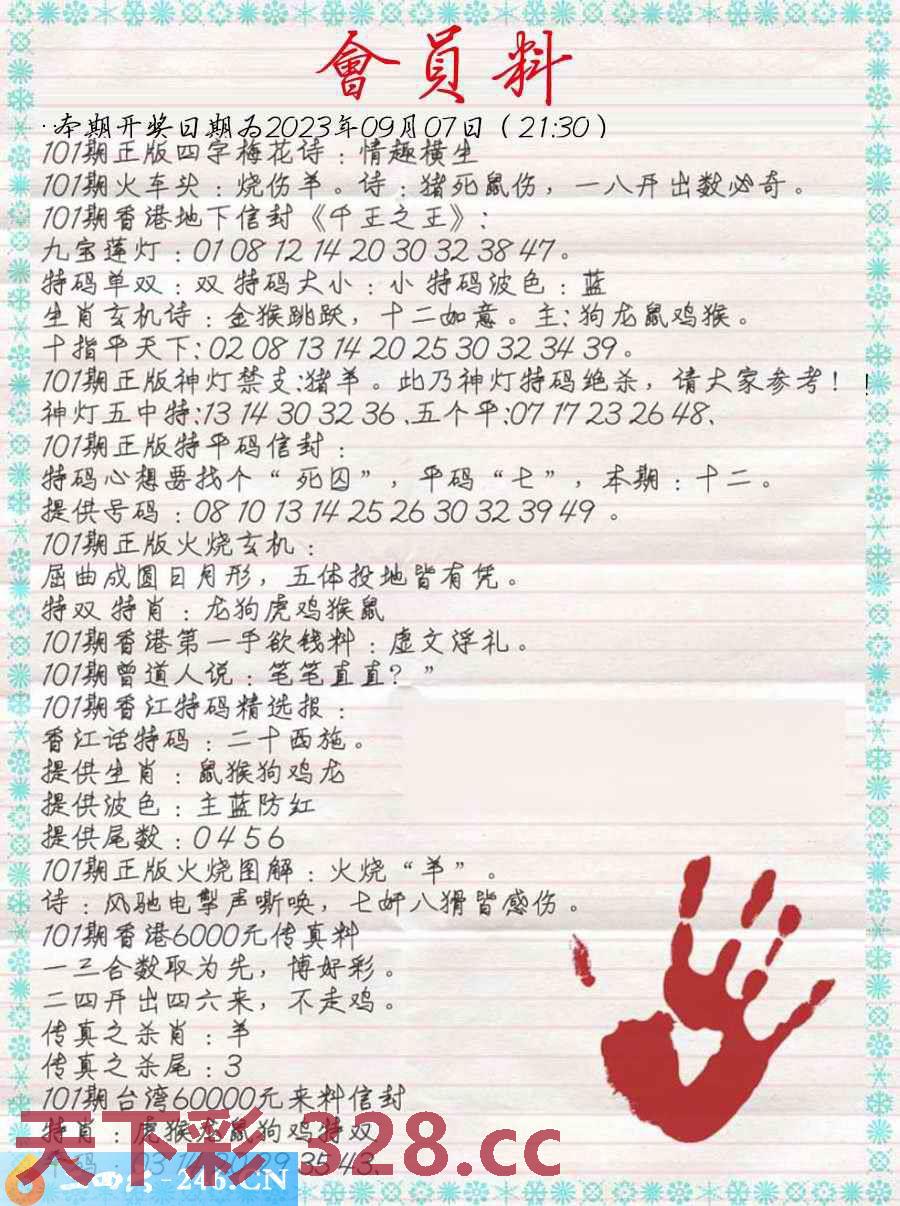 會員料
·本期开奖日期为2023年09月07日（21:30）
101期正版四字梅花诗：情趣横生
101期火车头：烧伤羊。诗：猪死鼠伤，一八开出数必奇。
101期香港地下信封《千王之王》：
九宝莲灯：01 08 12 14 20 30 32 38 47。
特码单双：双 特码大小：小 特码波色：蓝
生肖玄机诗：金猴跳跃，十二如意。主：狗龙鼠鸡猴。
十指平天下：02 08 13 14 20 25 30 32 34 39。
101期正版神灯禁支：猪羊。此乃神灯特码绝杀，请大家参考！！
神灯五中特：13 14 30 32 36、五个平：07 17 23 26 48、
101期正版特平码信封：
特码心想要找个“死囚”，平码“七”，本期：十二。
提供号码：08 10 13 14 25 26 30 32 39 49 。
101期正版火烧玄机：
屈曲成圆日月形，五体投地皆有凭。
特双 特肖：龙狗虎鸡猴鼠
101期香港第一手欲钱料：虚文浮礼。
101期曾道人说：笔笔直直？”
101期香江特码精选报：
香江话特码：二十西施。
提供生肖：鼠猴狗鸡龙
提供波色：主蓝防红
提供尾数：0 4 5 6
101期正版火烧图解：火烧“羊”。
诗：风驰电掣声嘶唤，七奸八猾皆感伤。
101期香港6000元传真料
一三合数取为先，博好彩。
二四开出四六来，不走鸡。
传真之杀肖：羊
传真之杀尾：3
101期台湾60000元来料信封
特肖：虎猴龙鼠狗鸡特双
天下彩 328.cc
35 43、
-246.CN